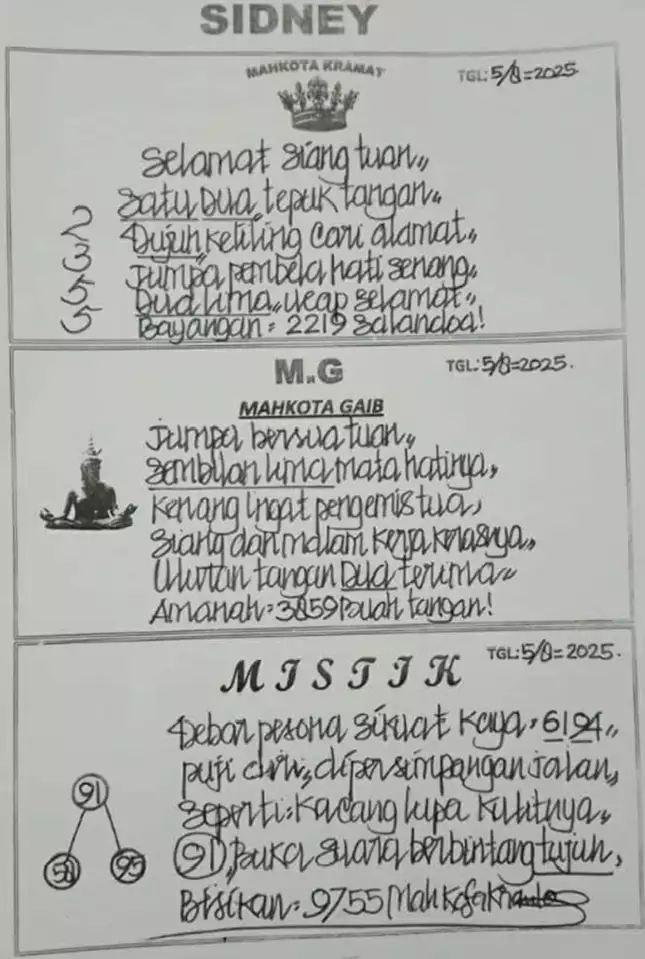 SIDNEY
MAHKOTA KRAMAT
TGL: 5/8=2025
Selamat siang tuan,,
Satu Dua,, tepuk tangan,,
2
Dujuh,, keliling cari alamat,,
3
Jumpa pembela hati senang,,
5
Dua lima,, ucap selamat,,
5
Bayangan = 2219 Salandoa!
M.G
TGL: 5/8=2025.
MAHKOTA GAIB
Jumpa bersua tuan,,
Sembilan lima mata hatinya,
Kenang ingat pengemis tua,
Siang dan malam kerja kerasnya,,
Uluran tangan Dua terima,,
Amanah = 3859 Buah tangan!
MISTIK
TGL: 5/8=2025.
Debar pesona sikuat kaya, 6194,,
puji diri,, dipersimpangan jalan,
91
Seperti: Kacang lupa kulitnya,,
91, Buka suara berbintang tujuh,
95
Bisikan = 9755 Mahkota